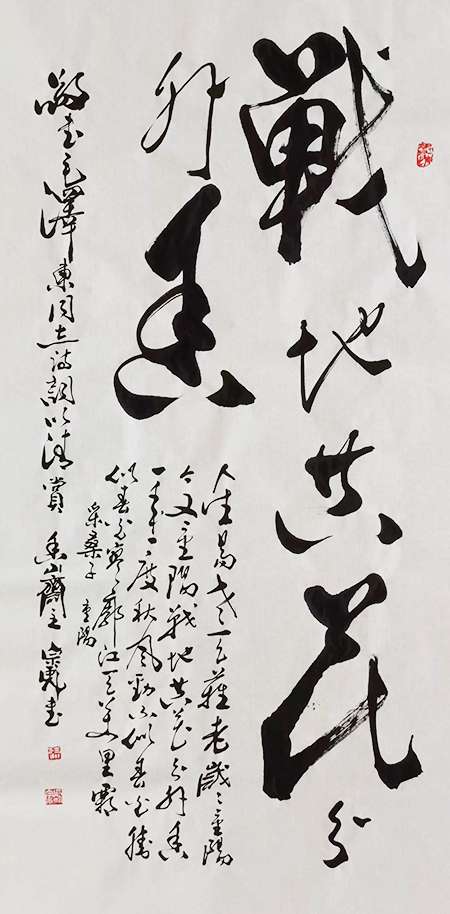 戰地黄花分
外香
人生易老天難老歲歲重陽
今又重陽戰地黄花分外香
一年一度秋風勁不似春光勝
似春光寥廓江天萬里霜
采桑子 重陽
敬書毛澤東同志詩詞以清賞 齋主 書